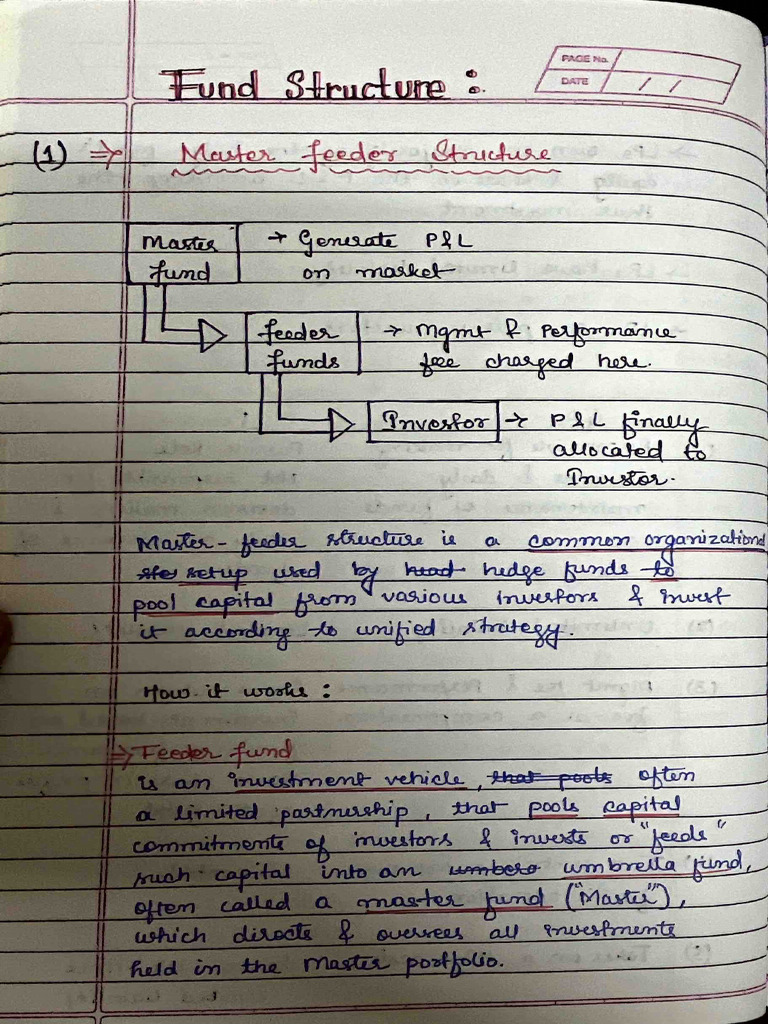 PAGE No.
DATE / /
Fund Structure :
(1) ⇒ Master feeder Structure
Master fund → Generate P&L
on market
feeder funds → Mgmt & Performance
fee charged here.
Investor → P&L finally
allocated to
Investor.
Master-feeder structure is a common organizational
setup used by hedge funds to
pool capital from various investors & invest
it according to unified strategy.
How it works :
⇒ Feeder fund
is an investment vehicle, that pools often
a limited partnership, that pools capital
commitments of investors & invests or "feeds"
such capital into an umbrella fund,
often called a master fund ("Master"),
which directs & oversees all investments
held in the Master portfolio.